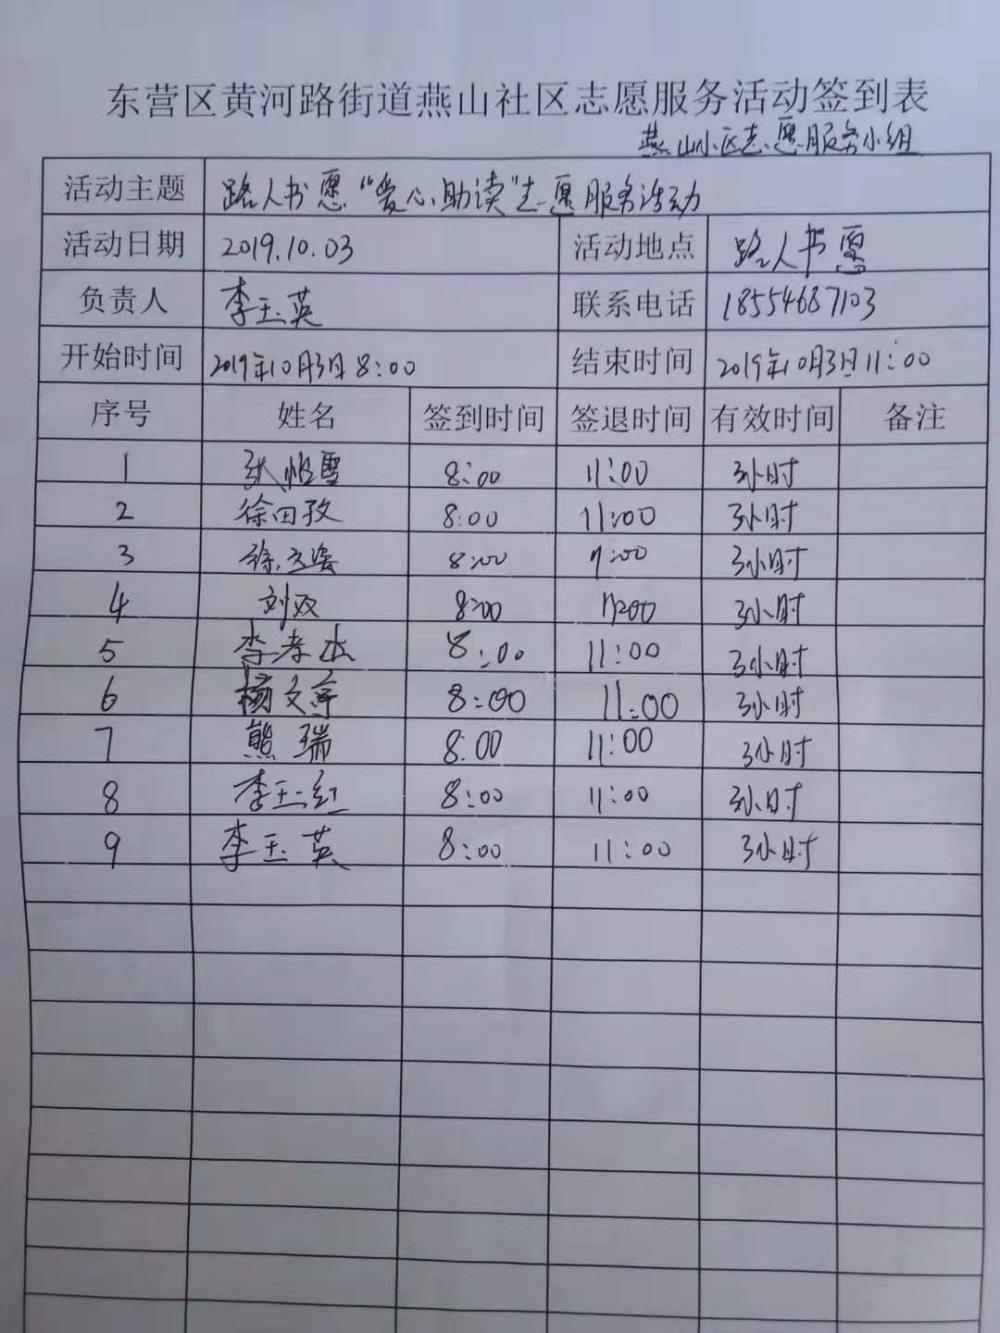 东营区黄河路街道燕山社区志愿服务活动签到表
燕山小区志愿服务小组
活动主题 路人书愿“爱心助读”志愿服务活动
活动日期 2019.10.03 活动地点 路人书愿
负责人 李玉英 联系电话 18554687103
开始时间 2019年10月3日 8:00 结束时间 2019年10月3日 11:00
序号 姓名 签到时间 签退时间 有效时间 备注
1 8:00 11:00 3小时
2 徐田孜 8:00 11:00 3小时
3 8:00 3小时
4 刘双 8:00 11:00 3小时
5 李孝杰 8:00 11:00 3小时
6 杨文亭 8:00 11:00 3小时
7 熊瑞 8:00 11:00 3小时
8 李玉红 8:00 11:00 3小时
9 李玉英 8:00 11:00 3小时